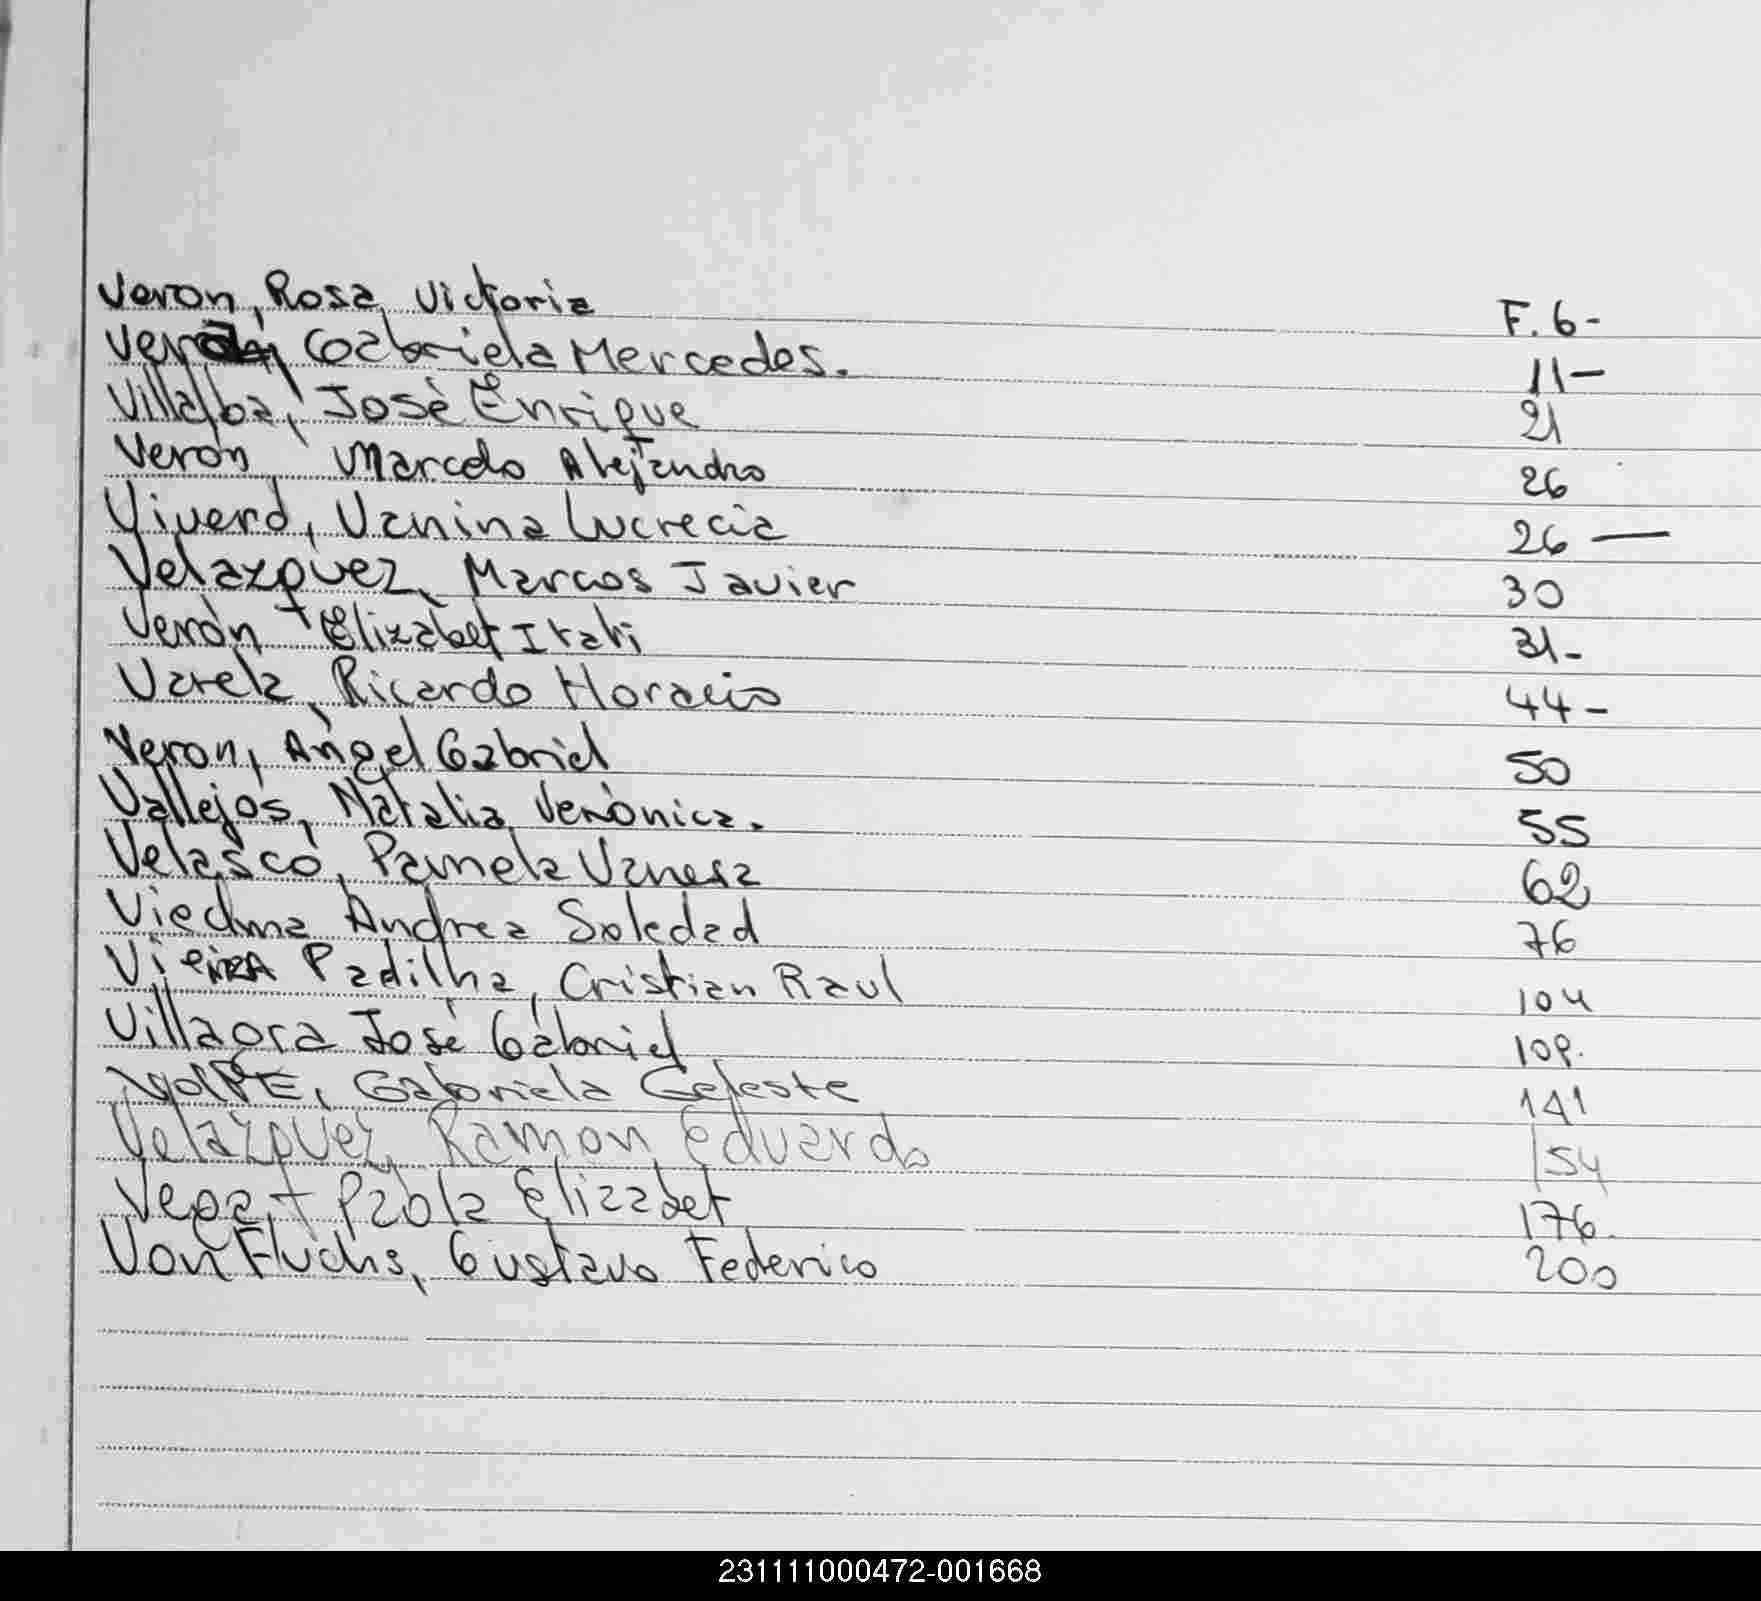 Veron, Rosa Victoria F. 6-
Verón, Gabriela Mercedes. 11-
Villalba, José Enrique 21
Verón Marcelo Alejandro 26
Viverd, Vanina Lucrecia 26 —
Velazquez, Marcos Javier 30
Verón Elizabet Itati 31-
Varela, Ricardo Horacio 44-
Veron, Angel Gabriel 50
Vallejos, Natalia Verónica. 55
Velasco, Pamela Vanesa 62
Viedma Andrea Soledad 76
Vieira Padilha, Cristian Raul 104
Villagra José Gabriel 109.
Volpe, Gabriela Celeste 141
Velazquez, Ramon Eduardo 154
Vega, Paola Elizabet 176.
Von Fluchs, Gustavo Federico 200
231111000472-001668